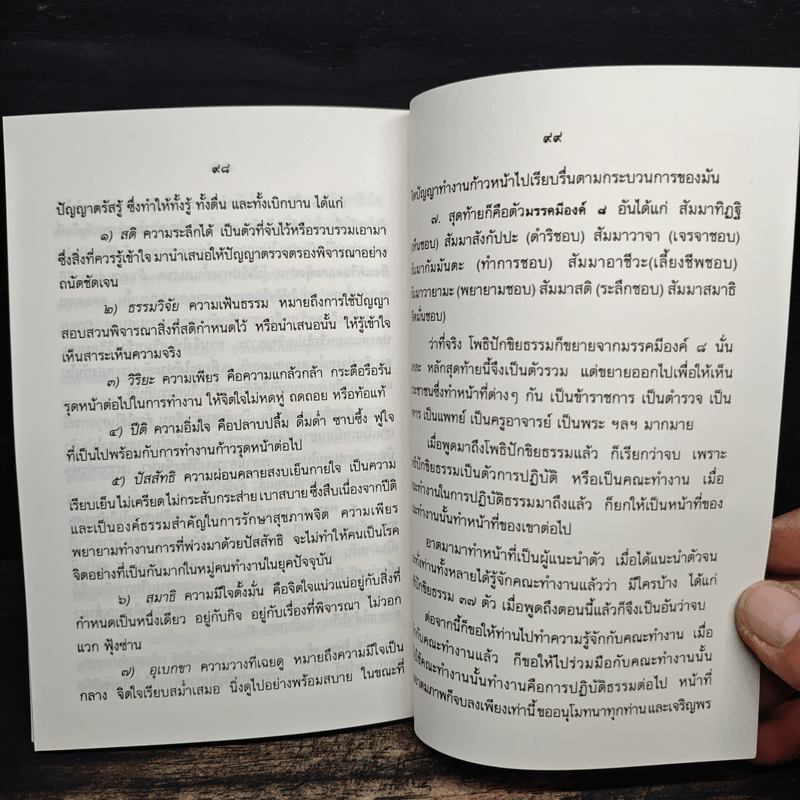 ๙๘
ปัญญาตรัสรู้ ซึ่งทำให้ทั้งรู้ ทั้งตื่น และทั้งเบิกบาน ได้แก่
๑) สติ ความระลึกได้ เป็นตัวที่จับไว้หรือรวบรวมเอามา
ซึ่งสิ่งที่ควรรู้เข้าใจ มานำเสนอให้ปัญญาตรวจตรองพิจารณาอย่าง
ถนัดชัดเจน
๒) ธรรมวิจัย ความเฟ้นธรรม หมายถึงการใช้ปัญญา
สอบสวนพิจารณาสิ่งที่สติกำหนดไว้ หรือนำเสนอนั้น ให้รู้เข้าใจ
เห็นสาระเห็นความจริง
๓) วิริยะ ความเพียร คือความแกล้วกล้า กระตือรือร้น
รุดหน้าต่อไปในการทำงาน ให้จิตใจไม่หดหู่ ถดถอย หรือท้อแท้
๔) ปีติ ความอิ่มใจ คือปลาบปลื้ม ดื่มด่ำ ซาบซึ้ง ฟูใจ
ที่เป็นไปพร้อมกับการทำงานก้าวรุดหน้าต่อไป
๕) ปัสสัทธิ ความผ่อนคลายสงบเย็นกายใจ เป็นความ
เรียบเย็นไม่เครียด ไม่กระสับกระส่าย เบาสบาย ซึ่งสืบเนื่องจากปีติ
และเป็นองค์ธรรมสำคัญในการรักษาสุขภาพจิต ความเพียร
พยายามทำงานการที่พ่วงมาด้วยปัสสัทธิ จะไม่ทำให้คนเป็นโรค
จิตอย่างที่เป็นกันมากในหมู่คนทำงานในยุคปัจจุบัน
๖) สมาธิ ความมีใจตั้งมั่น คือจิตใจแน่วแน่อยู่กับสิ่งที่
กำหนดเป็นหนึ่งเดียว อยู่กับกิจ อยู่กับเรื่องที่พิจารณา ไม่วอก
แวก ฟุ้งซ่าน
๗) อุเบกขา ความวางทีเฉยดู หมายถึงความมีใจเป็น
กลาง จิตใจเรียบสม่ำเสมอ นิ่งดูไปอย่างพร้อมสบาย ในขณะที่
๙๙
ปัญญาทำงานก้าวหน้าไปเรียบรื่นตามกระบวนการของมัน
๗. สุดท้ายก็คือตัวมรรคมีองค์ ๘ อันได้แก่ สัมมาทิฏฐิ
สัมมาสังกัปปะ (ดำริชอบ) สัมมาวาจา (เจรจาชอบ)
(ทำการชอบ) สัมมาอาชีวะ(เลี้ยงชีพชอบ)
(พยายามชอบ) สัมมาสติ (ระลึกชอบ) สัมมาสมาธิ
ว่าที่จริง โพธิปักขิยธรรมก็ขยายจากมรรคมีองค์ ๘ นั่น
หลักสุดท้ายนี้จึงเป็นตัวรวม แต่ขยายออกไปเพื่อให้เห็น
ซึ่งทำหน้าที่ต่างๆ กัน เป็นข้าราชการ เป็นตำรวจ เป็น
เป็นแพทย์ เป็นครูอาจารย์ เป็นพระ ฯลฯ มากมาย
เมื่อพูดมาถึงโพธิปักขิยธรรมแล้ว ก็เรียกว่าจบ เพราะ
เป็นตัวการปฏิบัติ หรือเป็นคณะทำงาน เมื่อ
ในการปฏิบัติธรรมมาถึงแล้ว ก็ยกให้เป็นหน้าที่ของ
ทำหน้าที่ของเขาต่อไป
อาตมามาทำหน้าที่เป็นผู้แนะนำตัว เมื่อได้แนะนำตัวจน
ท่านทั้งหลายได้รู้จักคณะทำงานแล้วว่า มีใครบ้าง ได้แก่
๓๗ ตัว เมื่อพูดถึงตอนนี้แล้วก็จึงเป็นอันว่าจบ
ต่อจากนี้ก็ขอให้ท่านไปทำความรู้จักกับคณะทำงาน เมื่อ
กับคณะทำงานแล้ว ก็ขอให้ไปร่วมมือกับคณะทำงานนั้น
คณะทำงานนั้นทำงานคือการปฏิบัติธรรมต่อไป หน้าที่
ก็จบลงเพียงเท่านี้ ขออนุโมทนาทุกท่าน และเจริญพร